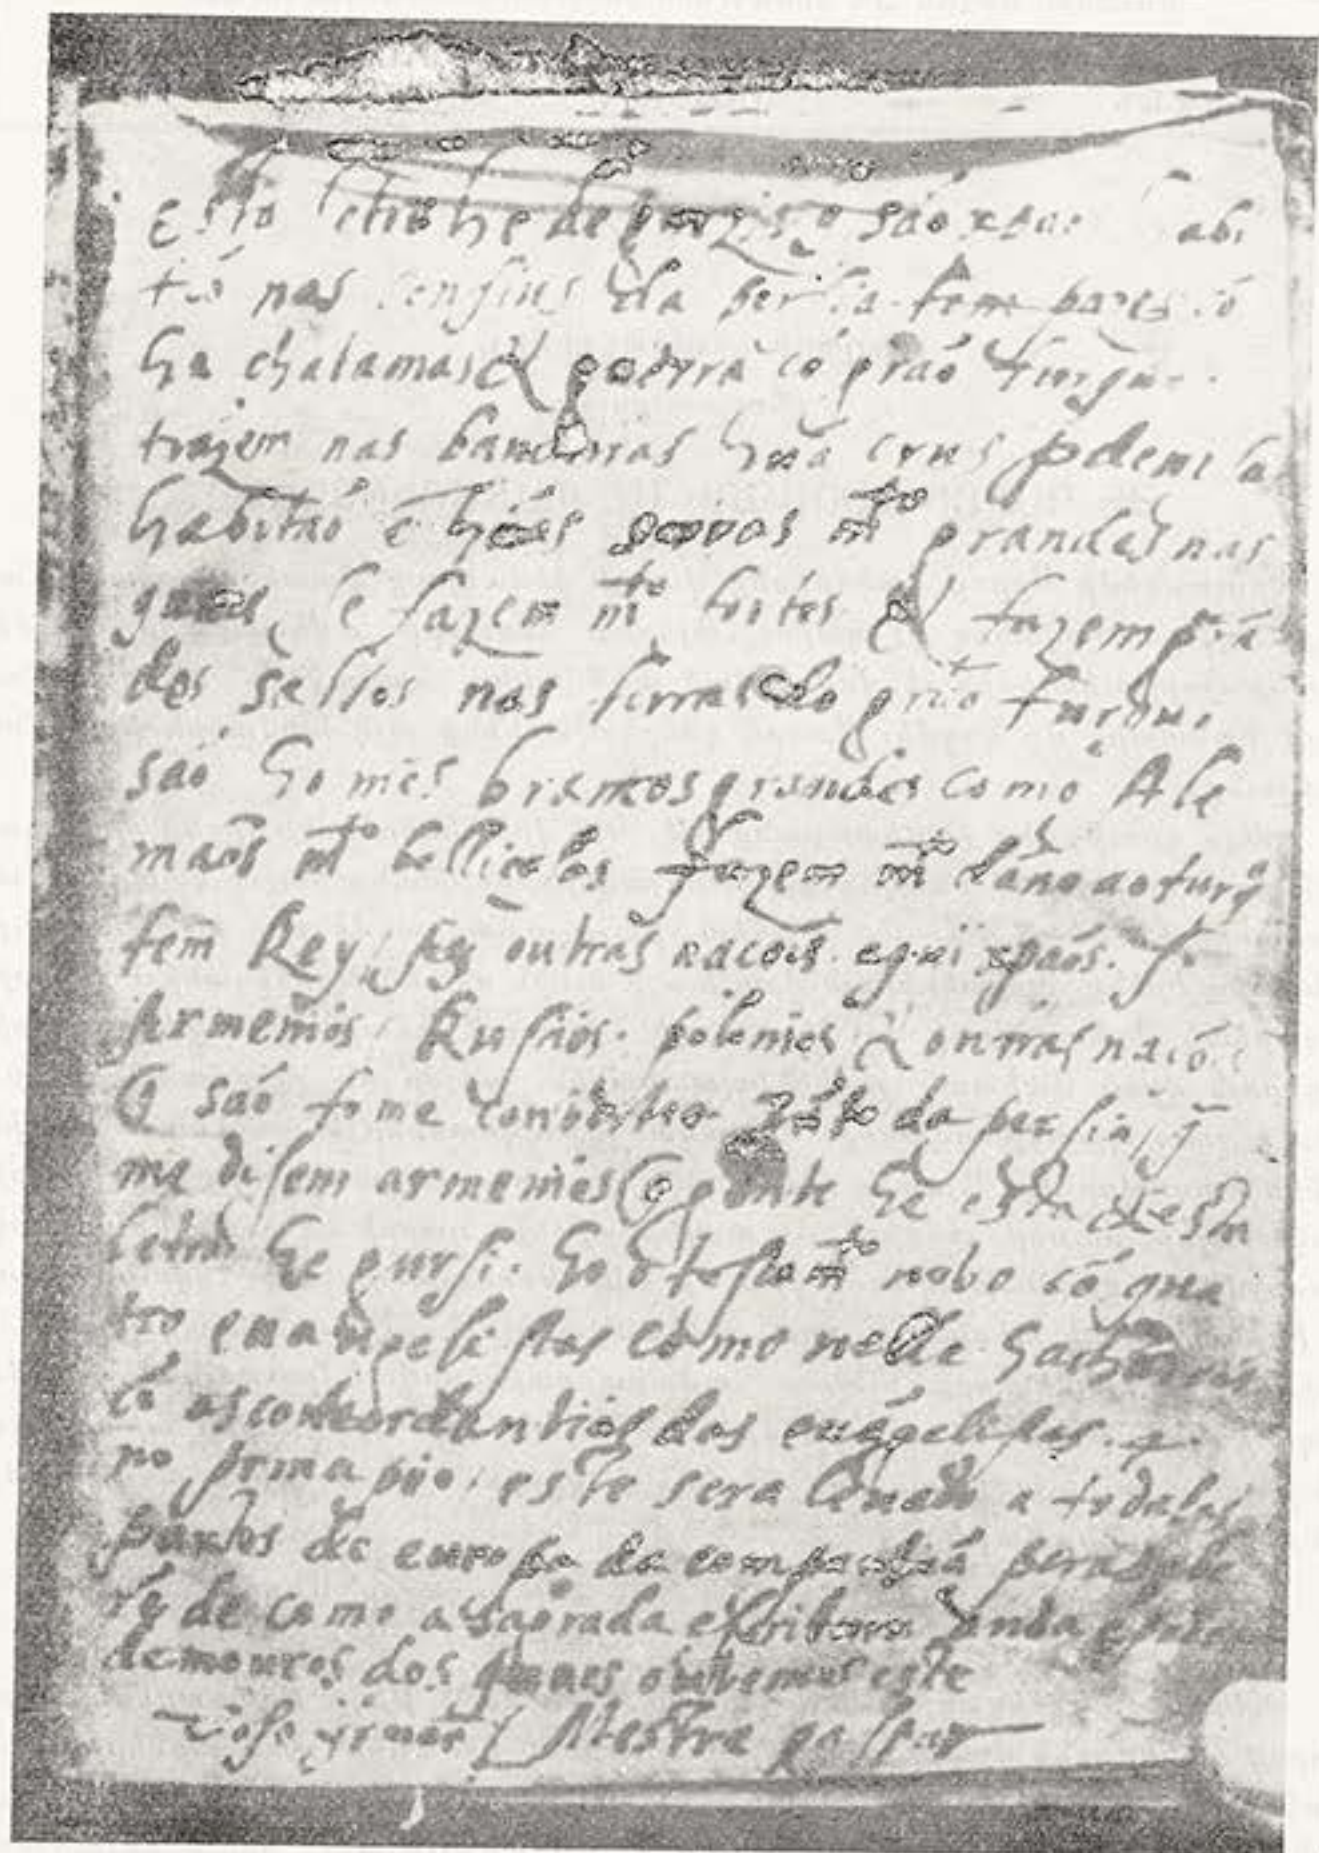 Esta letra he de gorgis q são xpãos abi
tã nas da persia. tem pazes cõ
ha & guerra cõ grão turquo.
trazem nas bandeiras hũa crus
habitaõ ẽ hũas m.to grandes nas
quaes se fazem m.to fortes & fazem grã
des saltos nas terras do grão turquo.
são homẽs brancos grandes como Ale
maõs m.to bellicosos fazem m.to dano ao turq.o
tem Rey, outras nacois aqui xpaõs. s.
Armenios. Rusios. polonios & outras naçõ
q são da persia, q̃
me disem armenios q gente he esta & esta
letra he gursi. ho o testam.to nobo cõ qua
tro euangelistas como nelle
lã as concordantias dos euãgelistas.
no prinçipio. este sera leuado a todalas
partes de europa da companhia pera
rẽ de como a sagrada escritura anda
de mouros dos quaes ouvemos este
voso jrmaõ / Mestre gaspar